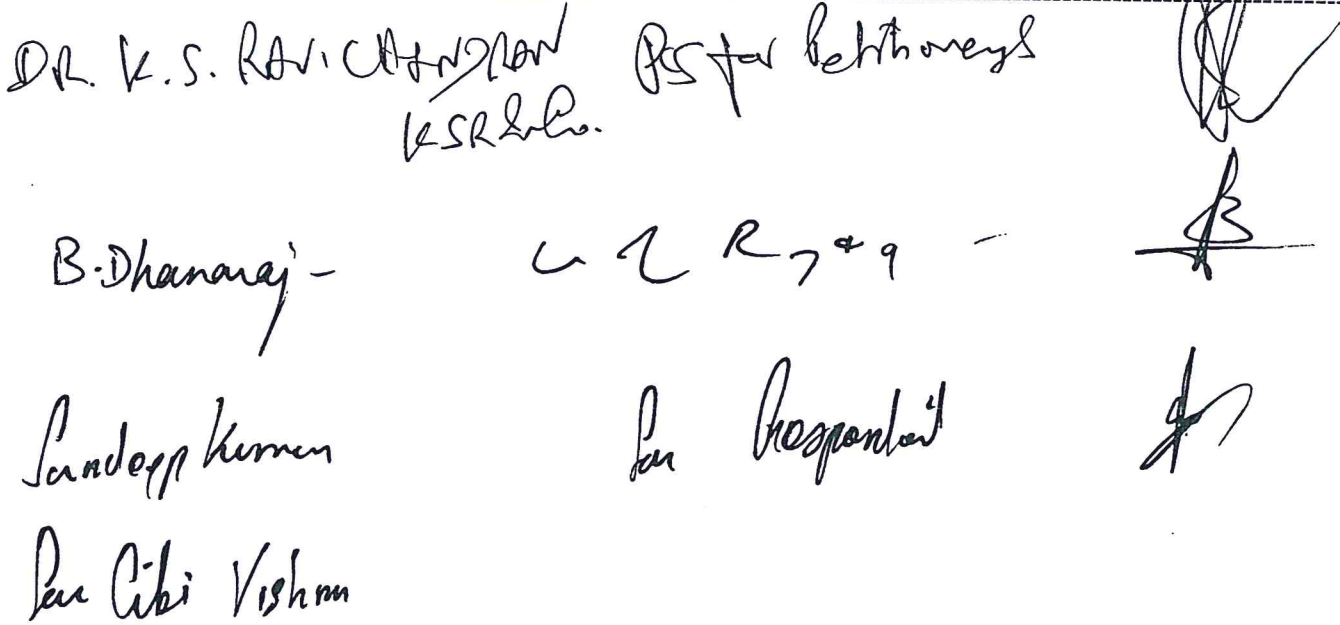 DR. K.S. RAVICHANDRAN PCS for Petitioners
KSR & Co.
B. Dhanaraj - R 7 & 9 -
Sandeep Kumar for Respondent
for Cibi Vishnu